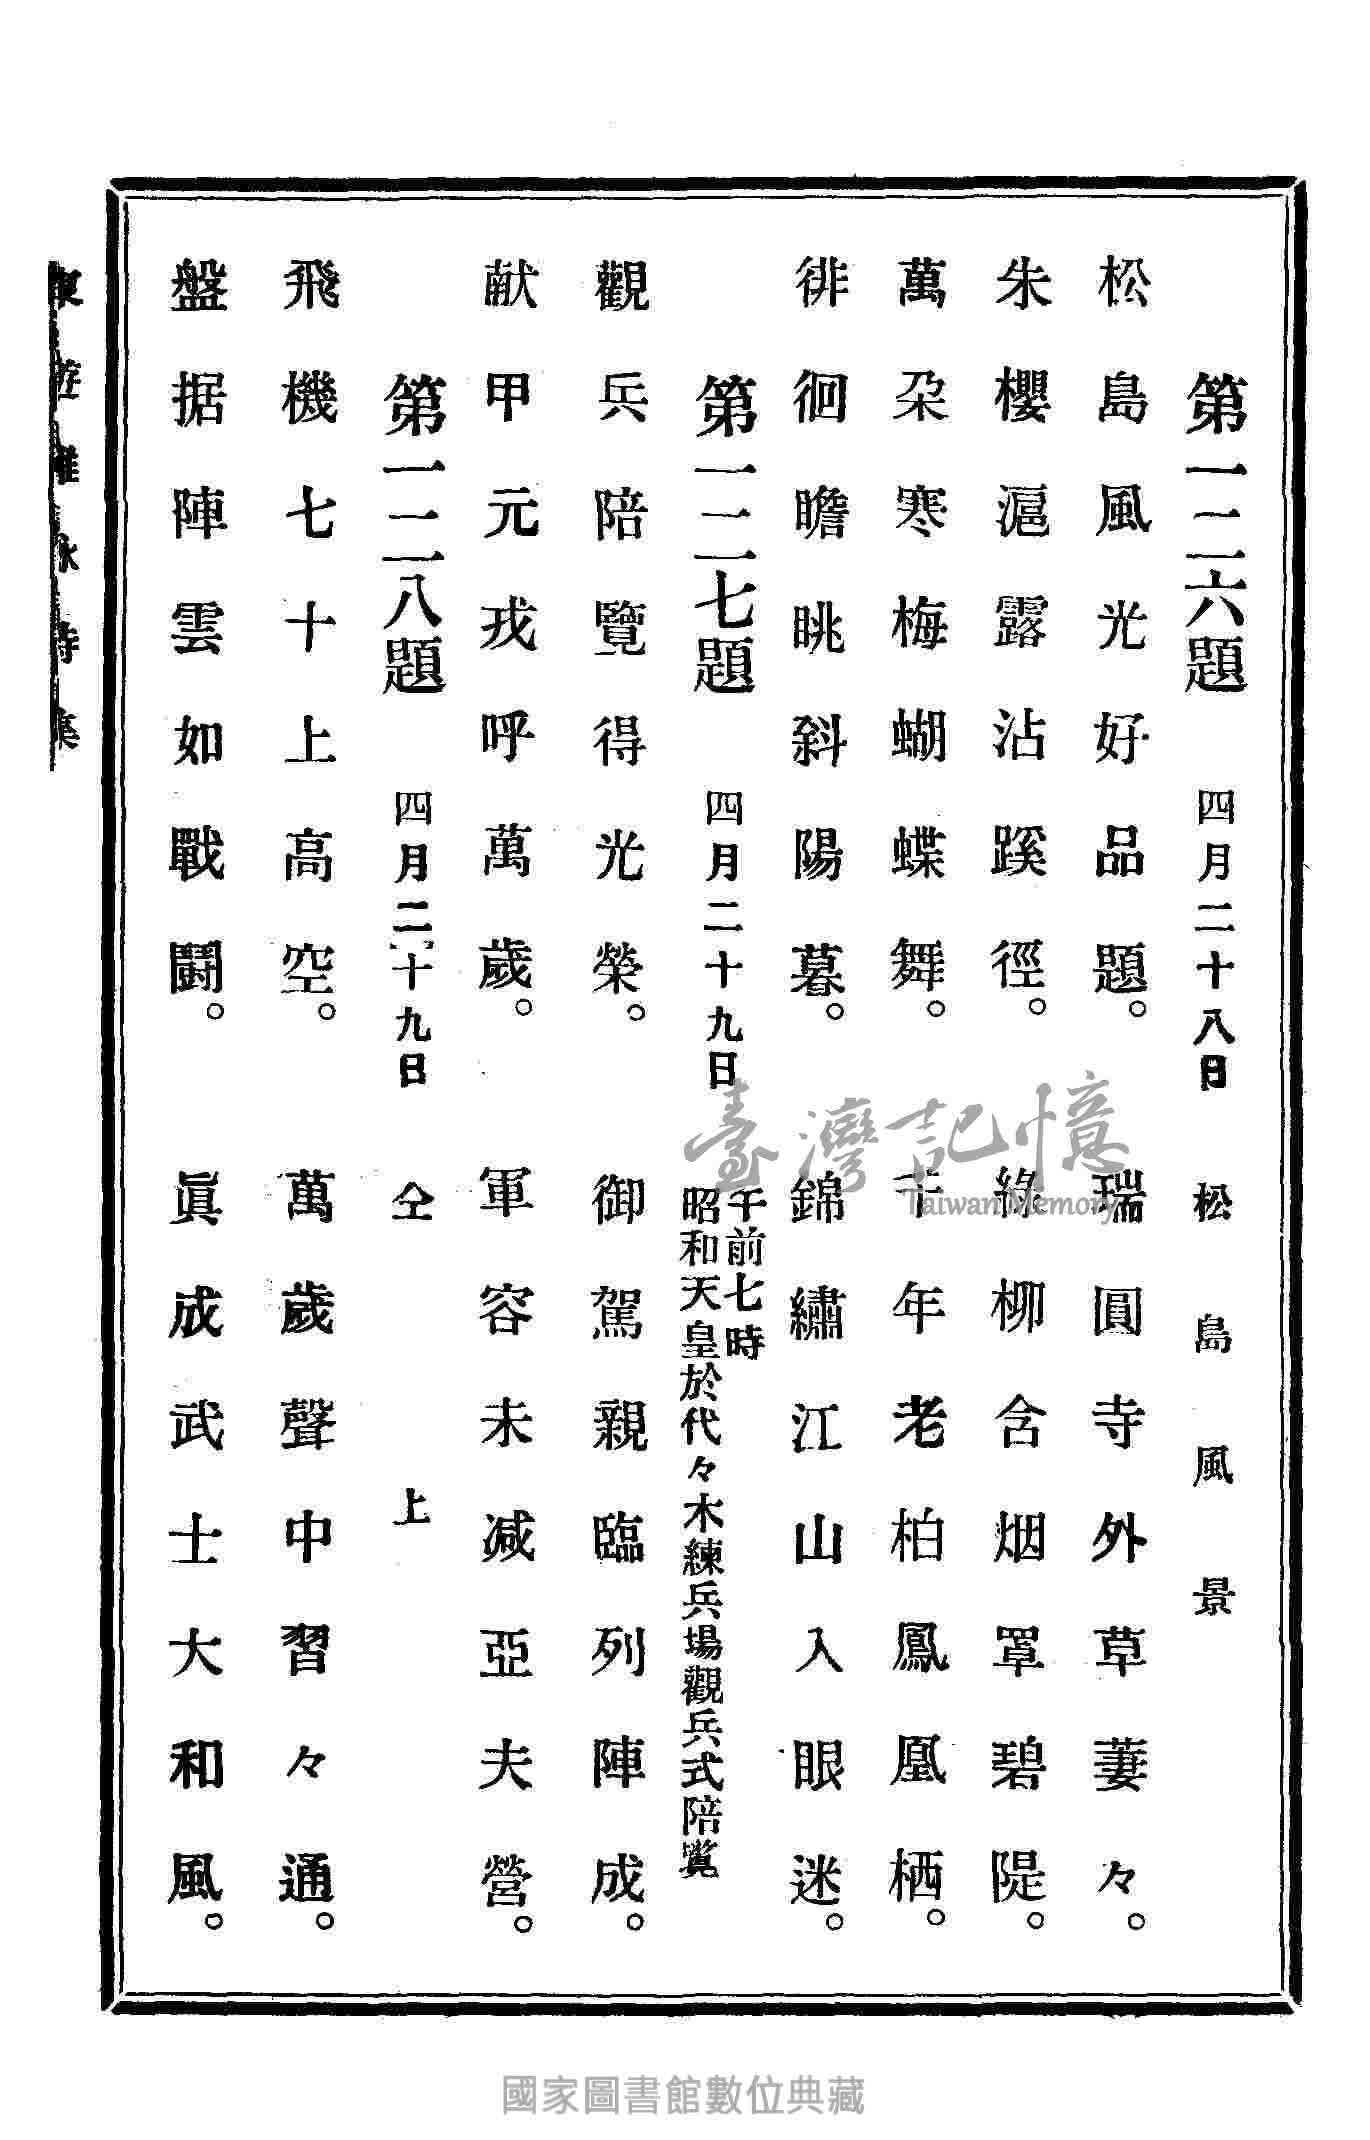 第一二六題　四月二十八日　松島風景
松島風光好品題。　瑞圓寺外草萋々。
朱櫻滬露沾蹊徑。　綠柳含烟罩碧隄。
萬朶寒梅蝴蝶舞。　千年老柏鳳凰栖。
徘徊瞻眺斜陽暮。　錦繡江山入眼迷。
第一二七題　四月二十九日　午前七時
昭和天皇於代々木練兵場觀兵式陪覽
觀兵陪覽得光榮。　御駕親臨列陣成。
献甲元戎呼萬歲。　軍容未減亞夫營。
第一二八題　四月二十九日　仝上
飛機七十上高空。　萬歲聲中習々通。
盤据陣雲如戰鬪。　眞成武士大和風。
東遊雜詠詩集
臺灣記憶
Taiwan Memory
國家圖書館數位典藏